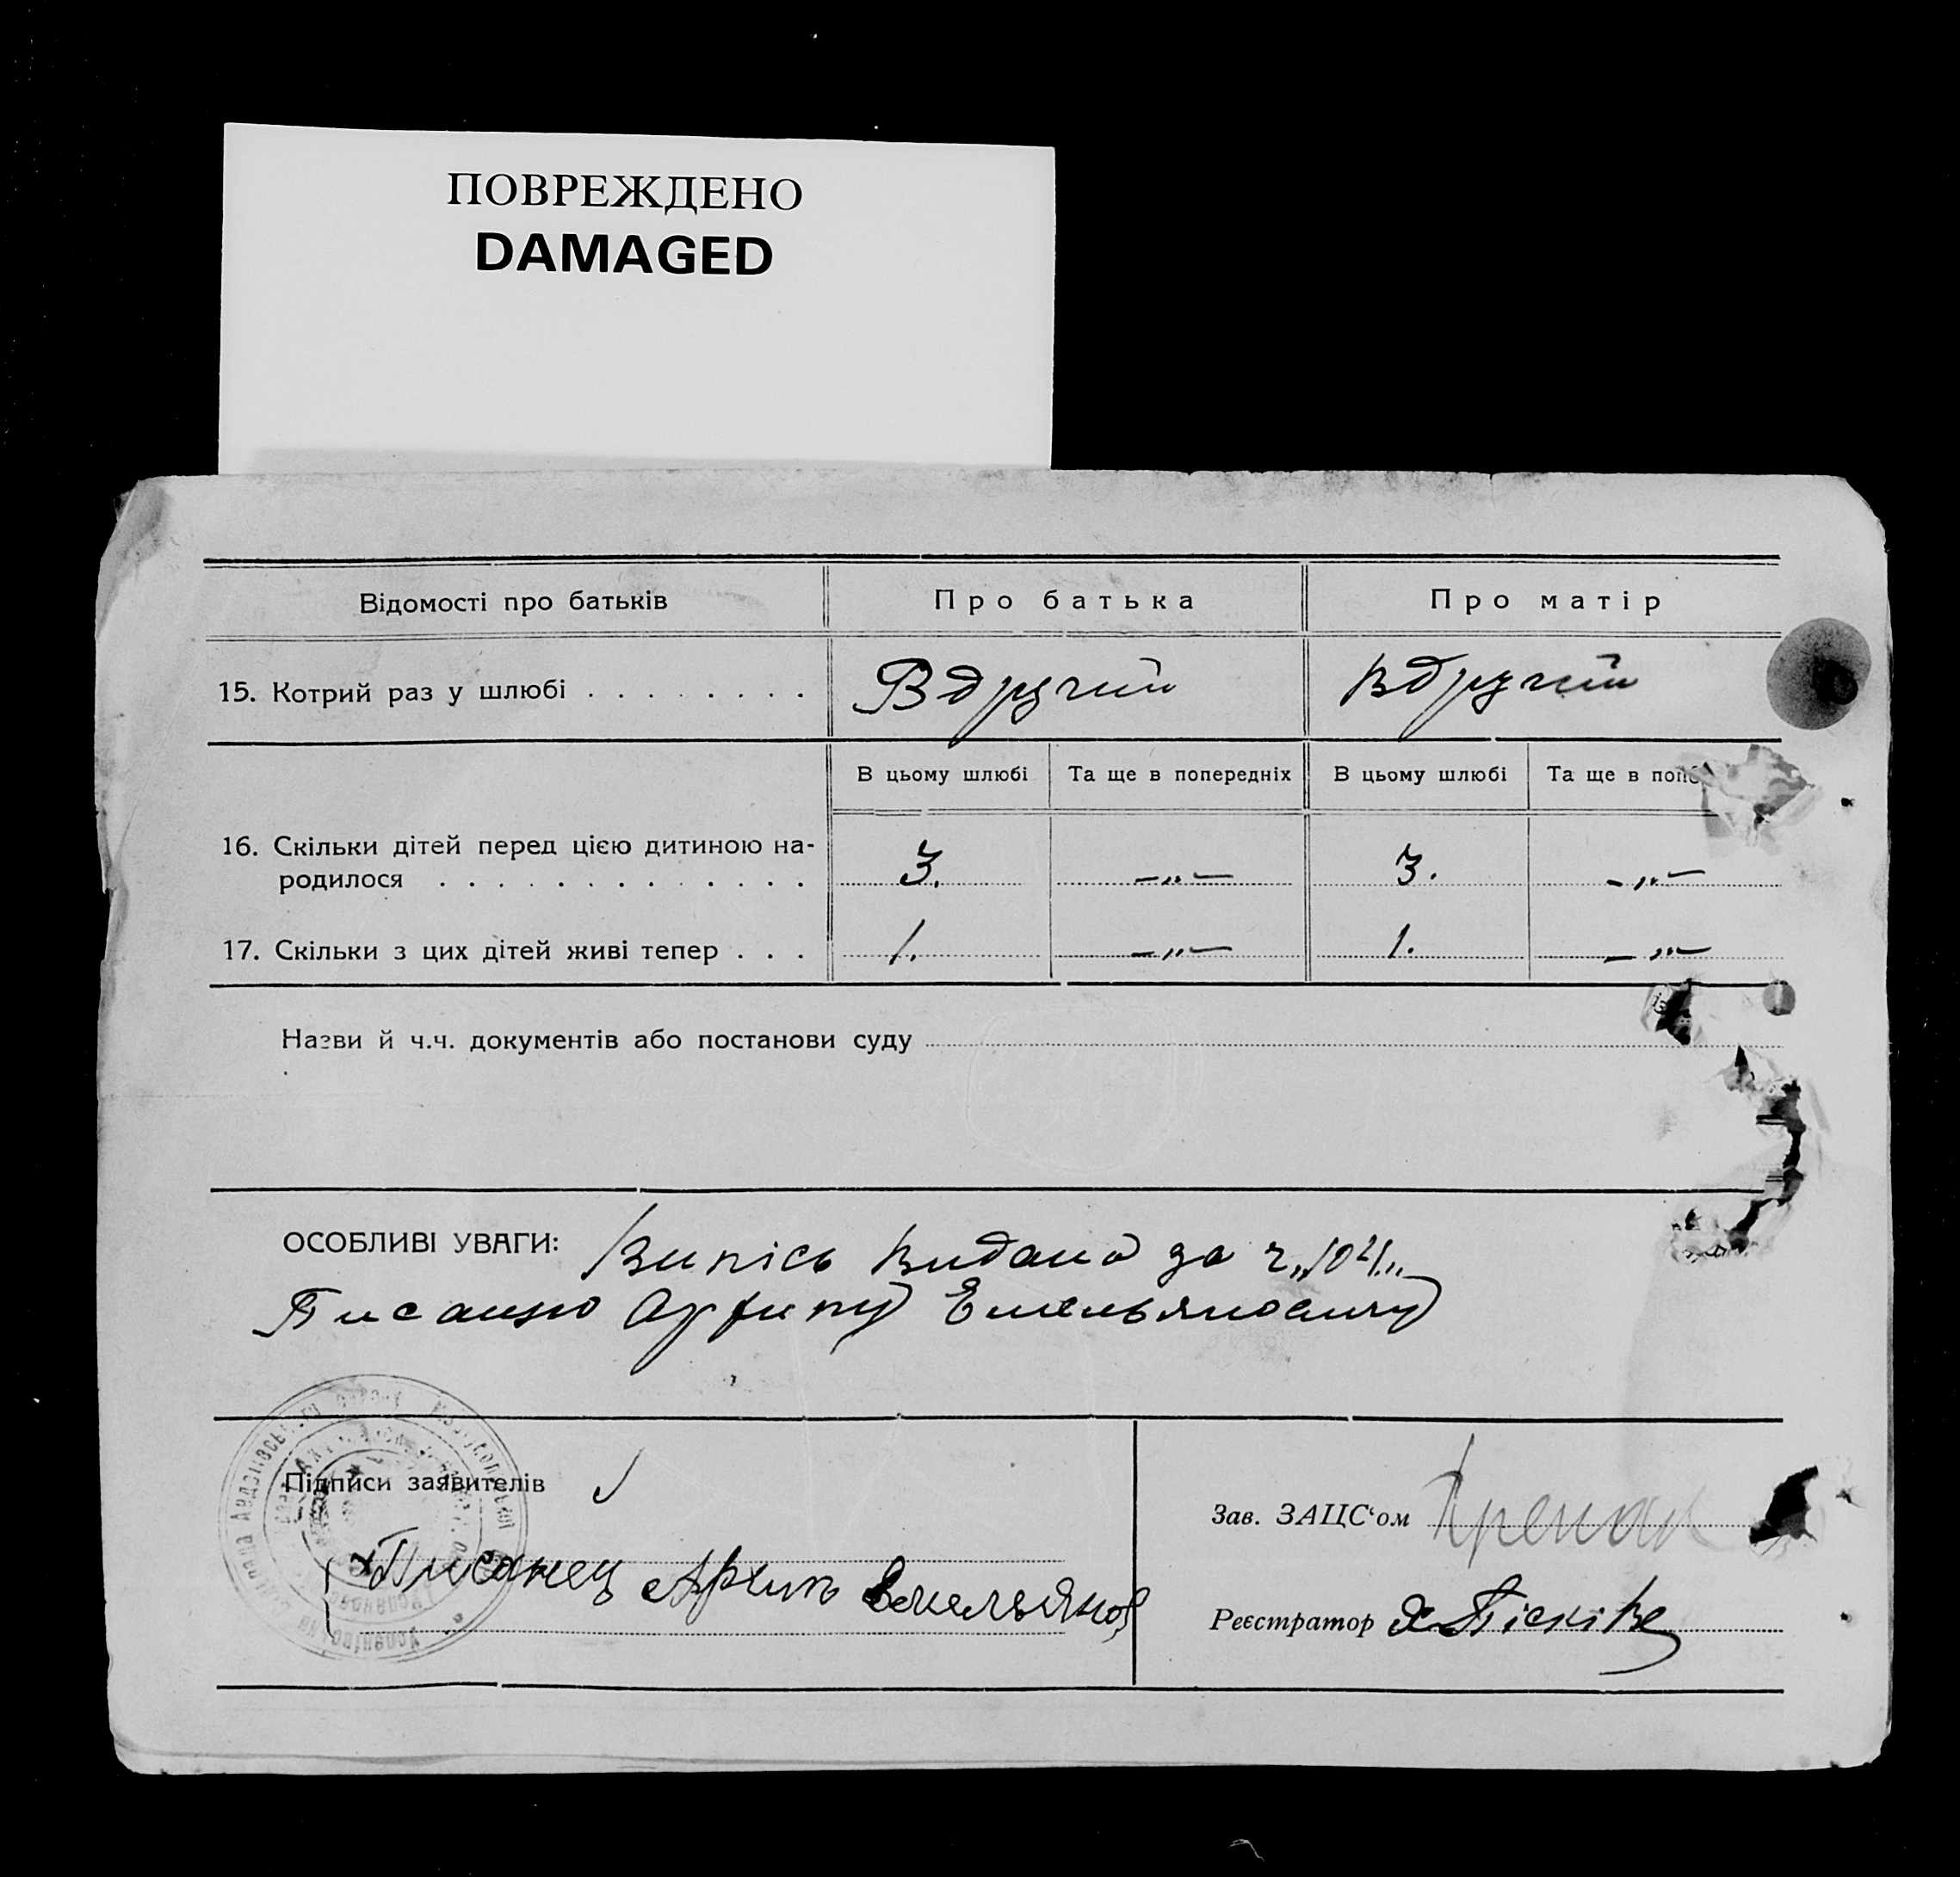 ПОВРЕЖДЕНО
DAMAGED
Відомості про батьків
Про батька
Про матір
15. Котрий раз у шлюбі . . . . . . . .
Вдручий
Вдручий
В цьому шлюбі
Та ще в попередніх
В цьому шлюбі
Та ще в попе
16. Скільки дітей перед цією дитиною на-
родилося . . . . . . . . . . . . .
3.
-„-
3.
-„-
17. Скільки з цих дітей живі тепер . . .
1.
-„-
1.
-„-
Назви й ч.ч. документів або постанови суду
ОСОБЛИВІ УВАГИ: Випісь видана за ч„104„
Писанцю Архипу Емельяновичу
Підписи заявителів
Писанец Архип Емельянов
Зав. ЗАЦС‘ом
Реєстратор